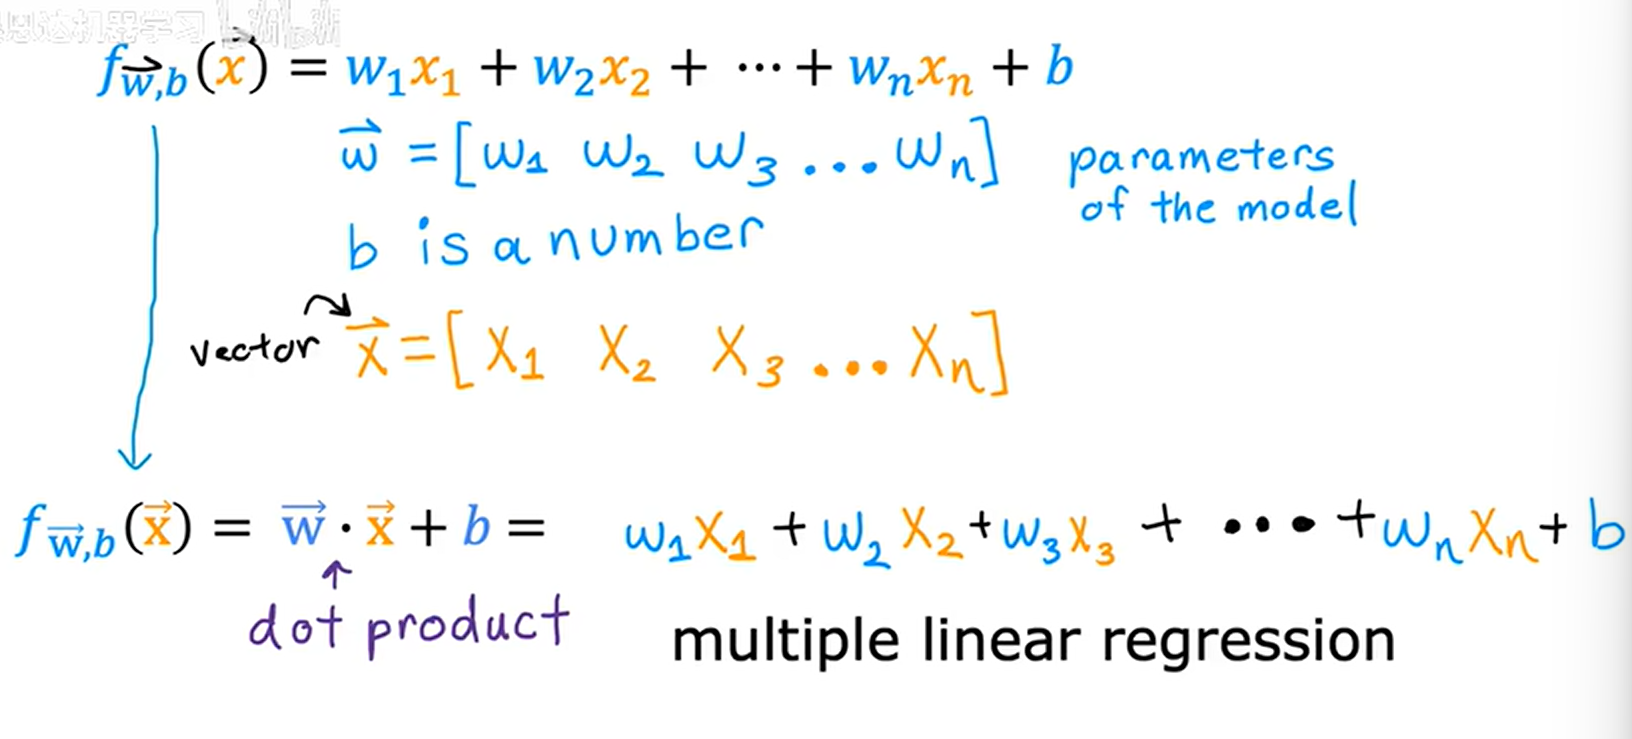 恩达机器学习
f_{\vec{w},b}(\vec{x}) = w_1x_1 + w_2x_2 + ⋯ + w_nx_n + b
\vec{w} = [w_1 w_2 w_3 ... w_n] parameters
of the model
b is a number
vector \vec{x} = [x_1 x_2 x_3 ... x_n]
f_{\vec{w},b}(\vec{x}) = \vec{w} · \vec{x} + b = w_1x_1 + w_2x_2 + w_3x_3 + ... + w_nx_n + b
dot product
multiple linear regression